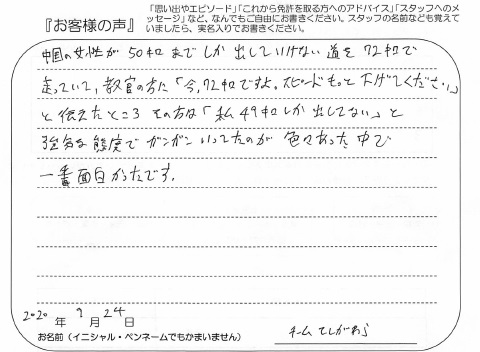 『お客様の声』
「思い出やエピソード」「これから免許を取る方へのアドバイス」「スタッフへのメ
ッセージ」など、なんでもご自由にお書きください。スタッフの名前なども覚えて
いましたら、実名入りでお書きください。
中国の女性が 50キロまでしか出していけない道を 72キロで
走っていて、教官の方に「今、72キロですよ。スピードもっと下げてください。」
と伝えたところ その方は「私 49キロしか出してない」と
強気な態度でガンガンいってたのが 色々あった中で
一番面白かったです。
2020 年 9 月 24 日
お名前（イニシャル・ペンネームでもかまいません）
チーム てしがわら